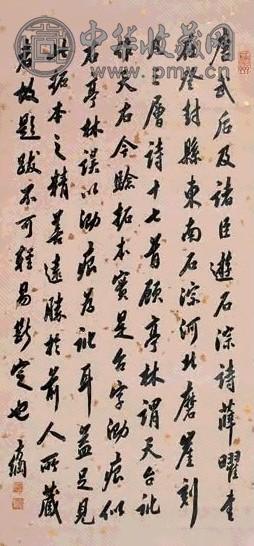 中华收藏网
唐武后及諸臣遊石淙詩薛曜書
在登封縣東南石淙河北磨崖刻
層詩十七首顧亭林謂天台訛
作天右今驗拓本實是台字泐痕似
右亭林誤以泐痕為訛耳益足見
此拓本之精善遠勝於前人所藏
者故題跋不可輕易斷定也